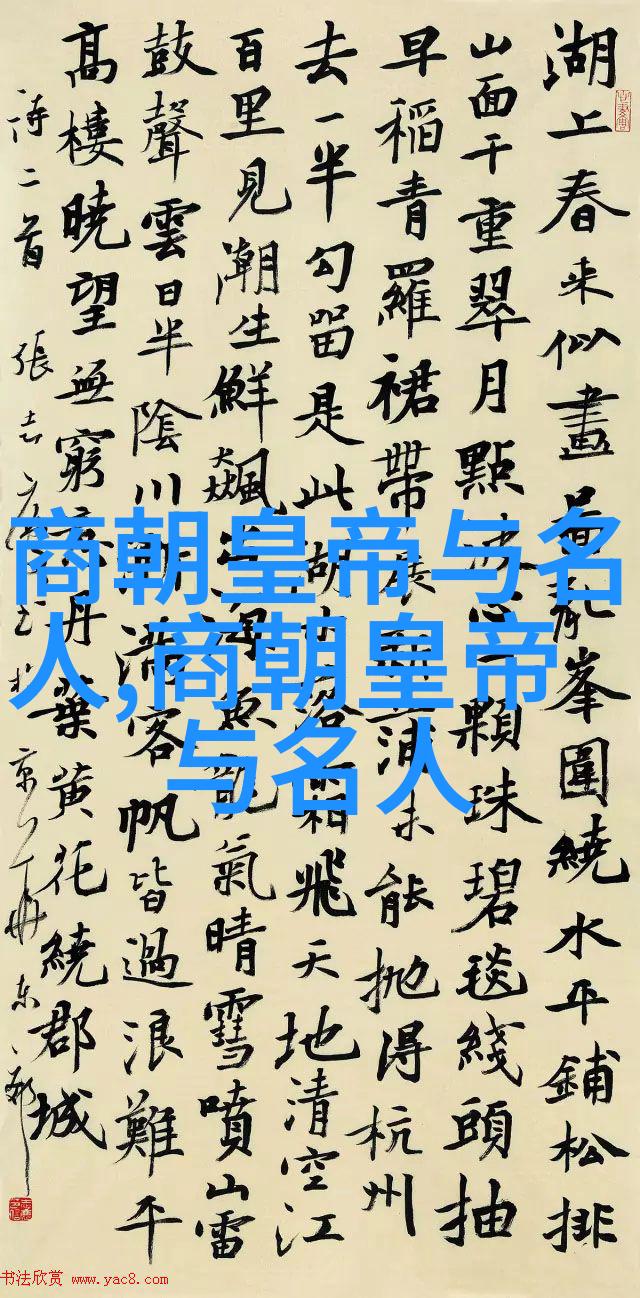 湖上春来似畫圖亂峯圍繞水平鋪松排
山面千重翠月點波心一顆珠碧毯綫頭抽
早稻青羅裙帶展新蒲未能抛得杭州
去一半勾留是此湖木落霜飛天地清空江
百里見潮生鮮飆出海魚龍氣晴雪噴山雷
鼓聲雲日半陰川漸滿客帆皆過浪難平
高樓曉望無窮意丹葉黄花繞郡城
詩二首 張志
商朝皇帝与名
人,商朝皇帝
与名人
书法欣赏 www.yac8.com